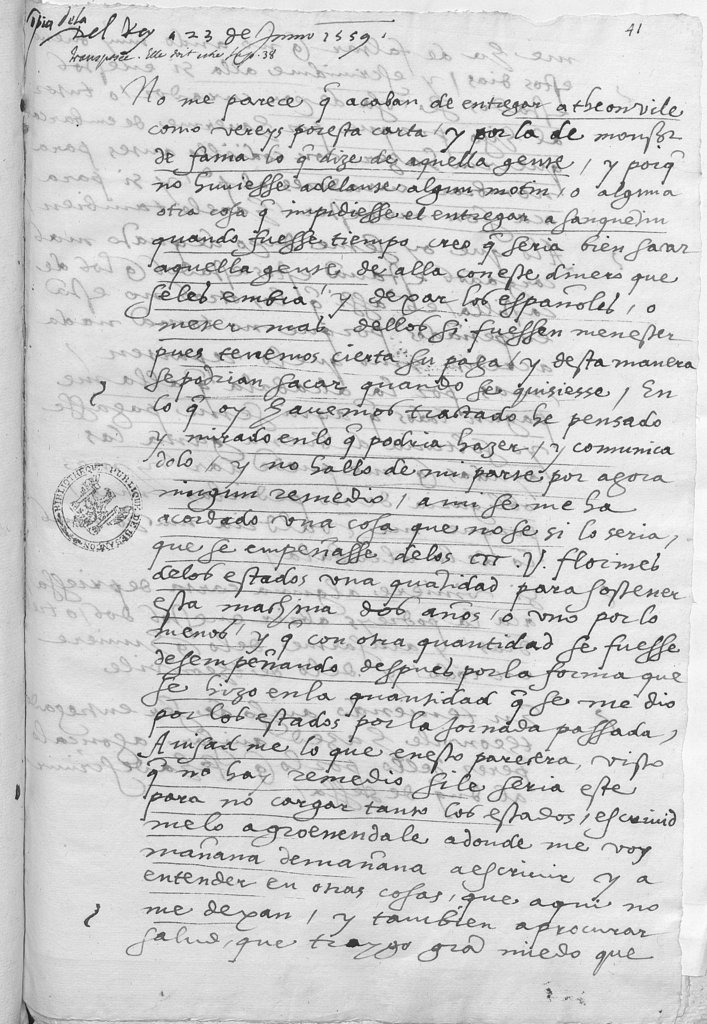 Copia de la
Del Rey a 23 de Junio 1559.
41
Transposée. Elle doit être au p. 38
No me parece q̃ acaban de entregar a theonvile
como vereys por esta carta, y por la de mons.or
de fama lo q̃ dize de aquella gente, y porq̃
no huviesse adelante algun motin, o alguna
otra cosa q̃ impidiesse el entregar a sanquentin
quando fuesse tiempo creo q̃ seria bien sacar
aquella gente de alla con este dinero que
seles embia, y dexar los españoles, o
meter mas dellos si fuessen menester
pues tenemos cierta su paga, y desta manera
se podrian sacar quando se quisiesse, En
lo q̃ oy havemos trattado he pensado
y mirado en lo q̃ podria hazer, y comunica
dolo, y no hallo de mi parte por agora
ningun remedio, a mi se me ha
acordado una cosa que no se si lo seria,
que se empeñasse delos florines
delos estados una quantidad para sostener
esta machina dos años, o uno por lo
menos, y q̃ con otra quantidad se fuesse
desempeñando despues por la forma que
se hizo en la quantidad q̃ se me dio
por los estados por la Jornada passada,
Avisad me lo que en esto parecera, visto
q̃ no hay remedio sile seria este
para no cargar tanto los estados, escrivid
melo a groenendale adonde me voy
mañana demañana a escrivir y a
entender en otras cosas, que aqui no
me dexan, y tambien a procurar
salud, que traygo grã miedo que
BIBLIOTHEQUE PUBLIQUE DE BESANÇON